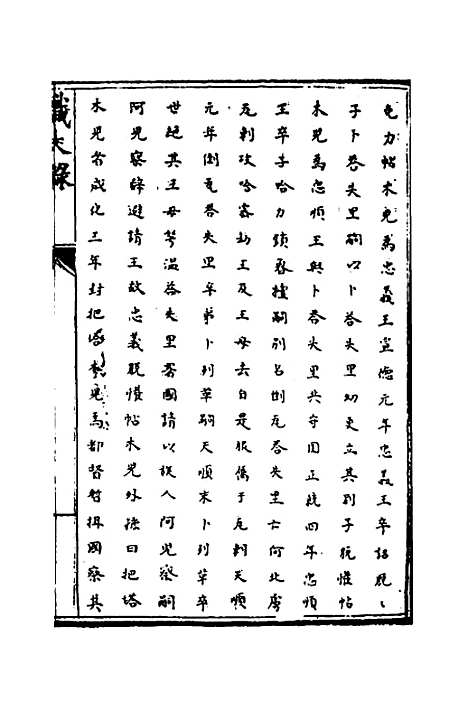 免力帖木兒為忠義王宣德元年忠義王卒詔脫〻
子卜荅失里嗣以卜荅失里幼更立其別子脫懽帖
木兒為忠順王與卜荅失里共守国正統四年忠順
王卒子哈力鎖魯檀嗣別名倒瓦荅失里亡何北虜
瓦剌攻哈宻刼王及王母去自是服属于瓦剌天順
元年倒瓦荅失里卒弟卜列革嗣天順末卜列革卒
世絕其王母弩温荅失里署國請以族人阿兒察嗣
阿兒察辭避請王故忠義脫懽帖木兒外孫曰把塔
木兒者成化二年封把塔木兒為都督暫攝國察其
識大錄